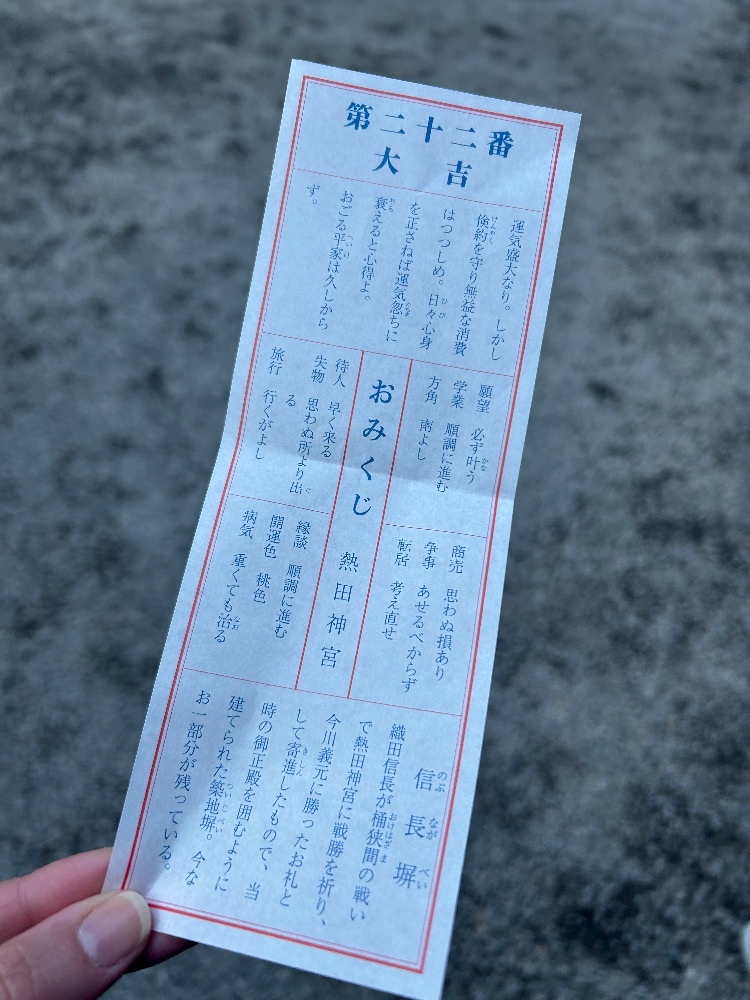 第二十二番
大吉
運気盛大なり。しかし
倹約を守り無益な消費
はつつしめ。日々心身
を正さねば運気忽ちに
衰えると心得よ。
おごる平家は久しから
ず。
願望　必ず叶う
学業　順調に進む
方角　南よし
商売　思わぬ損あり
争事　あせるべからず
転居　考え直せ
おみくじ　熱田神宮
待人　早く来る
失物　思わぬ所より出
る
旅行　行くがよし
縁談　順調に進む
開運色　桃色
病気　重くても治る
信長塀
織田信長が桶狭間の戦い
で熱田神宮に戦勝を祈り、
今川義元に勝ったお礼と
して寄進したもので、当
時の御正殿を囲むように
建てられた築地塀。今な
お一部分が残っている。